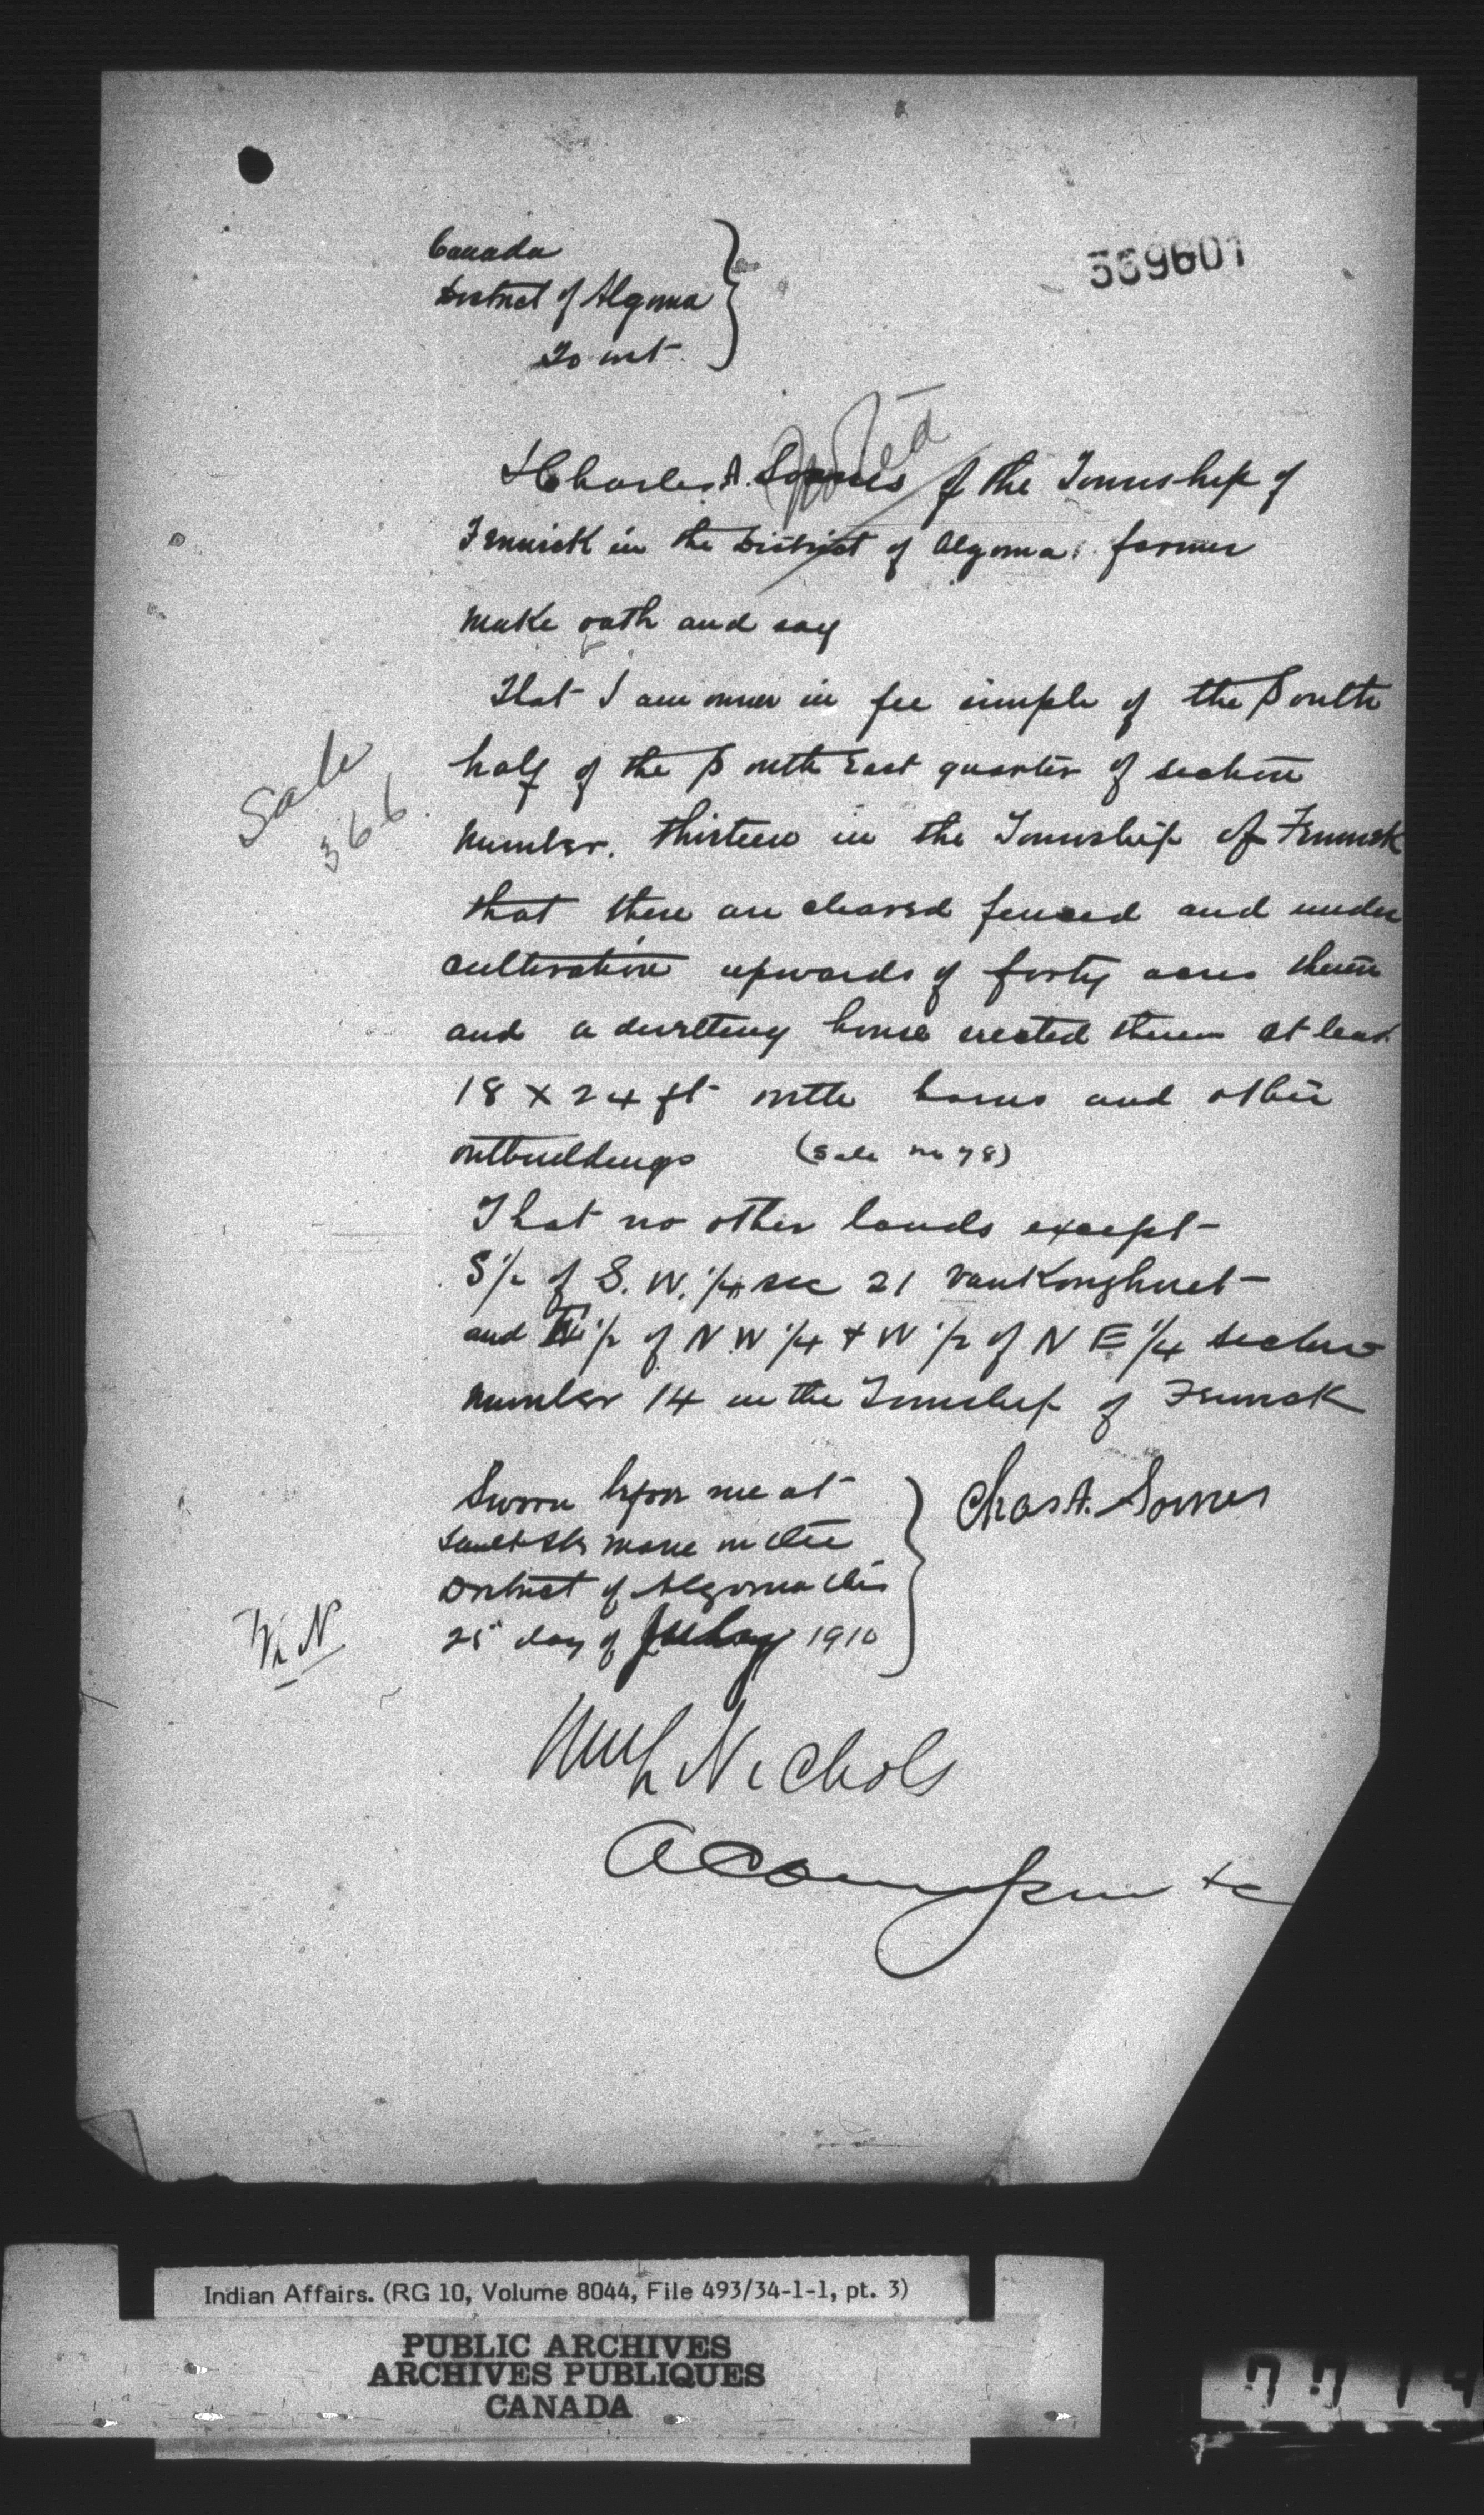 Canada
District of Algoma
To wit
369601
Noted
I Charles A. Somes of the Township of
Fenwick in the District of Algoma farmer
make oath and say
That I am owner in fee simple of the South
half of the South East quarter of section
Sale
366
number thirteen in the Township of Fenwick
that there are cleared fenced and under
cultivation upwards of forty acres therein
and a dwelling house erected therein at least
18 x 24 ft with barns and other
outbuildings (Sale no 78)
That no other lands except
S 1/2 of S. W. 1/4 sec 21 VanKoughnet
and 1/2 of N W 1/4 & W 1/2 of N E 1/4 section
number 14 in the Township of Fenwick
Sworn before me at
Sault Ste Marie in the
District of Algoma this
25 day of July 1910
Chas A. Somes
N
Wm L Nichols
A Commissioner &c
Indian Affairs. (RG 10, Volume 8044, File 493/34-1-1, pt. 3)
PUBLIC ARCHIVES
ARCHIVES PUBLIQUES
CANADA